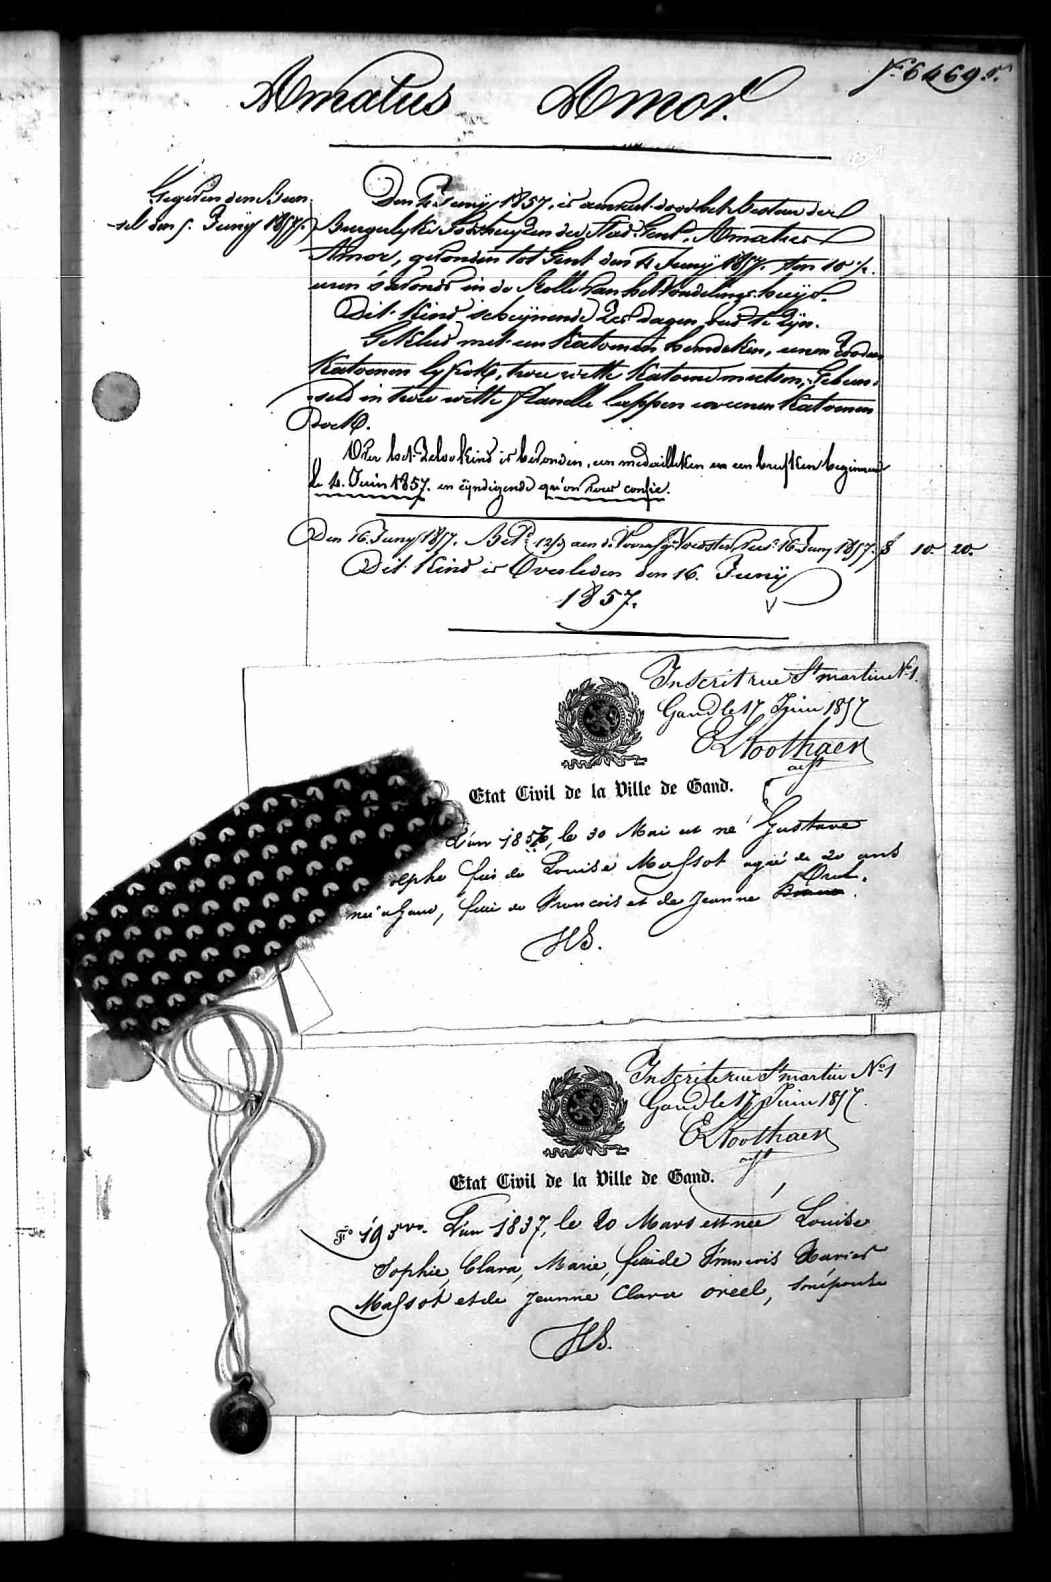 Amatus Amor.
Den 4 Junij 1857, is aenveerd door het bestuer der
Burgerlyke Godshuyzen der Stad Gent, Amatus
Amor, gevonden tot Gent den 4 Junij 1857. ten 10 ½
uren s'avonds in de Rolle van het Vondelingshuys.
Dit kind schynende zes dagen oud te zyn.
Gekleed met een katoenen hemdeken, eenen
katoenen lyfrok, twee witte katoene mutsen,
in twee witte flanelle lappen en eenen katoenen
doek.
Over het zelve kind is bevonden, een medailleken en een briefken beginnende
le 4. Juin 1857. en eyndigende qu'on vous confie.
Den 16 Juny 1857. 16 Juny 1857. 10 20
Dit Kind is Overleden den 16. Junij
1857.
Inscrit rue St martin No 1.
Gand le 17 Juin 1857
Etat Civil de la Ville de Gand.
L'an 1857, le 30 Mai est né Gustave
olphe fils de Louise Massot agée de 20 ans
née à Gand, fille de François et de Jeanne Oreel.
HB.
Inscrite rue St martin No 1
Gand le 17 Juin 1857.
Etat Civil de la Ville de Gand.
Fo 195 vo. L'an 1837, le 20 Mars est née Louise
Sophie, Clara, Marie, fille de François Xavier
Massot et de Jeanne Clara Oreel, son épouse
HB.